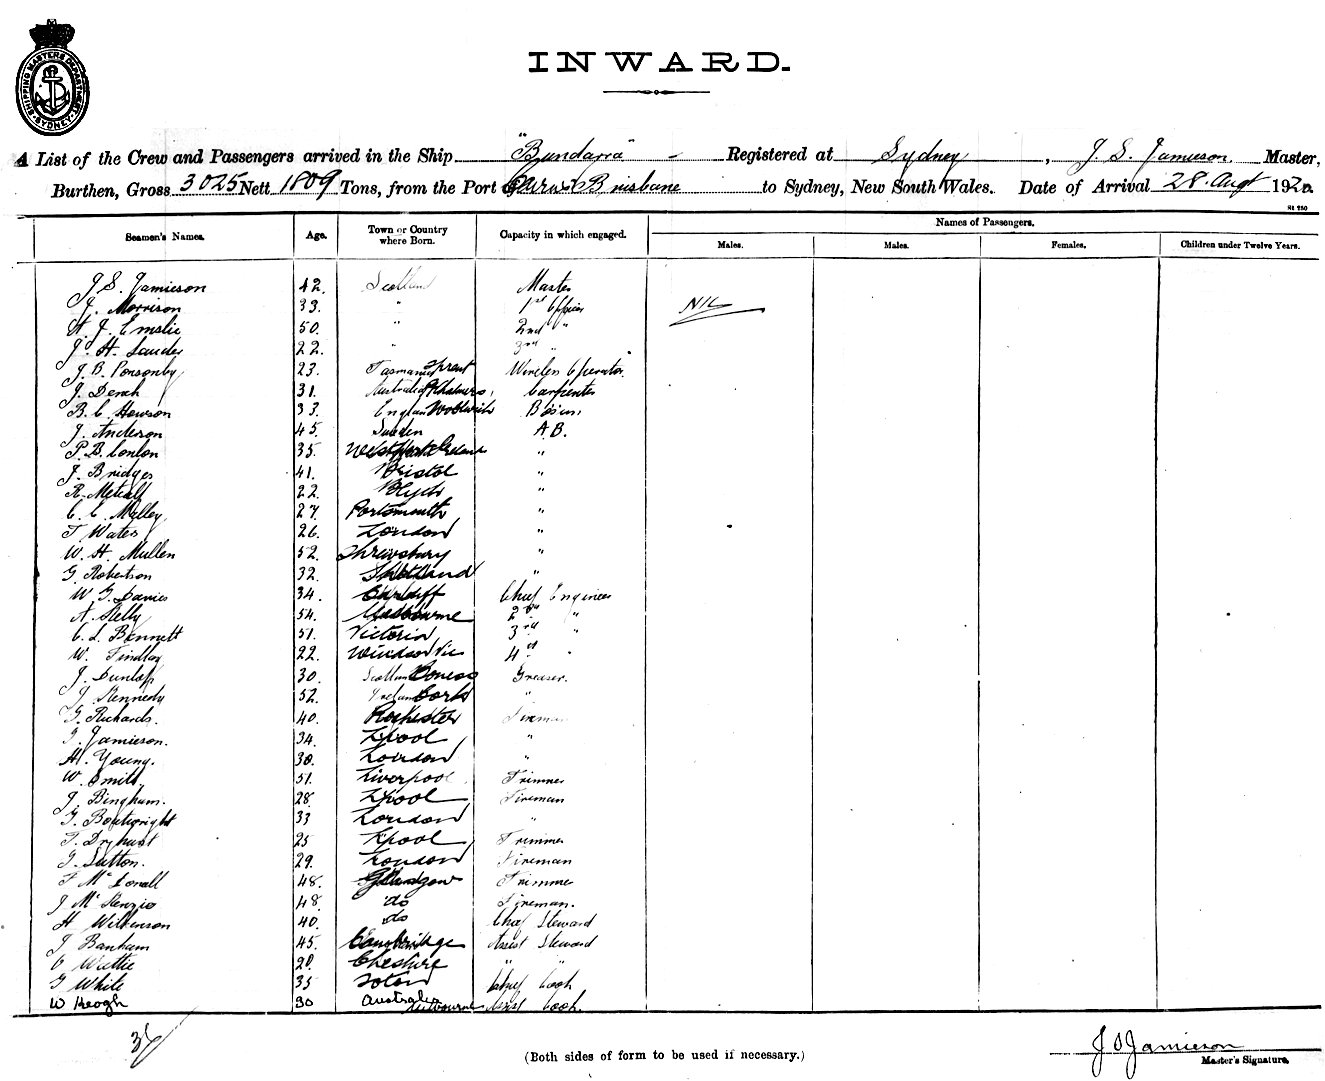 SHIPPING MASTERS DEPARTMENT SYDNEY
INWARD.
A List of the Crew and Passengers arrived in the Ship "Bundarra" Registered at Sydney, J. S. Jamieson. Master,
Burthen, Gross 3025 Nett 1809 Tons, from the Port Brisbane to Sydney, New South Wales. Date of Arrival 28. Augt 1920
St 250
Seamen's Names. Age. Town or Country where Born. Capacity in which engaged. Names of Passengers.
Males. Males. Females. Children under Twelve Years.
J. S. Jamieson 42. Scotland Master
J. Morrison 33. " 1st Officer NIL
J. Emslie 50. " 2nd "
J. H. Lauder 22. " 3rd "
J. B. Ponsonby 23. Tasmania Wireless Operator.
J. 31. Australia Carpenter
B. C. Howson 33. England Woolwich Bosun,
J. Anderson 45. Sweden A.B.
P. B. Conlon 35. "
J. Bridges 41. Bristol "
R. Metcalf 22. Blyth "
C. C. 27. Portsmouth "
T Waters 26. London "
W. H. Mullen 52. Shrewsbury "
G. Robertson 32. Shetland "
W G. Davies 34. Cardiff Chief Engineer
A. Kelly 54. Melbourne 2nd "
C. L. Bennett 51. Victoria 3rd "
W. Findlay 22. Windsor Vic 4th "
J. Dunlop 30. Scotland Boness Greaser.
J. Kennedy 52. Ireland Cork "
G. Richards. 40. Rochester Fireman
J. Jamieson. 34. L'pool "
H. Young. 30. London "
W. Smith 51. Liverpool Trimmer
J. Bingham. 28. L'pool Fireman
G. Boatwright 33 London "
T. Dryhurst 25 L'pool Trimmer
G. Sutton. 29. London Fireman
F Mc 48. Glasgow Trimmer
J McKenzie 48. do Fireman.
H Wilkinson 40. do Chief Steward
J Banham 45. Cambridge Assist Steward
C Wattie 20. Cheshire " "
G White 35 Soton Chief Cook
W Keogh 30 Australia Melbourne Assist Cook.
(Both sides of form to be used if necessary.)
J S Jamieson
Master's Signature.